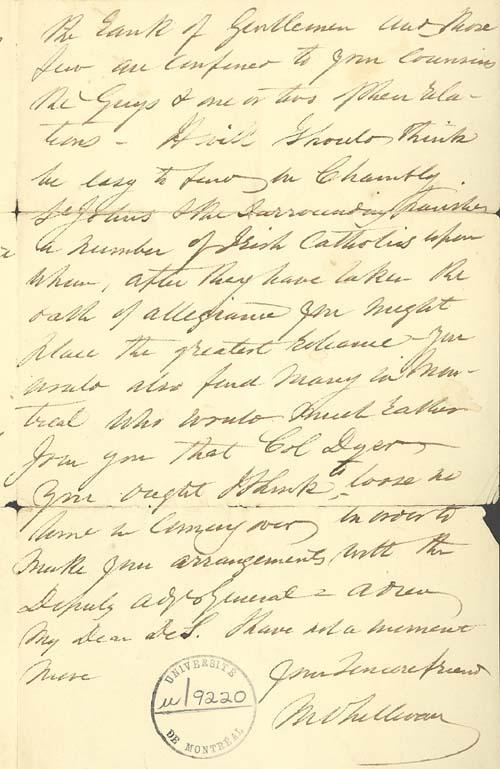 the rank of Gentlemen and those
few are confined to your cousins
the Guys & one or two of their rela-
tions - It will I should think
be easy to find in Chambly
St Johns & the surrounding Parishes
a number of Irish Catholics upon
whom, after they have taken the
oath of allegiance you might
place the greatest reliance - You
would also find many in Mon-
treal who would much rather
join you that Col Dyer
You ought I think to loose no
time in coming over in order to
make your arrangements with the
Deputy Adjt General = adieu
My Dear DeS. I have not a moment
more
Your Sincere friend
M O'Sullivan
UNIVERSITÉ
u/9220
DE MONTRÉAL